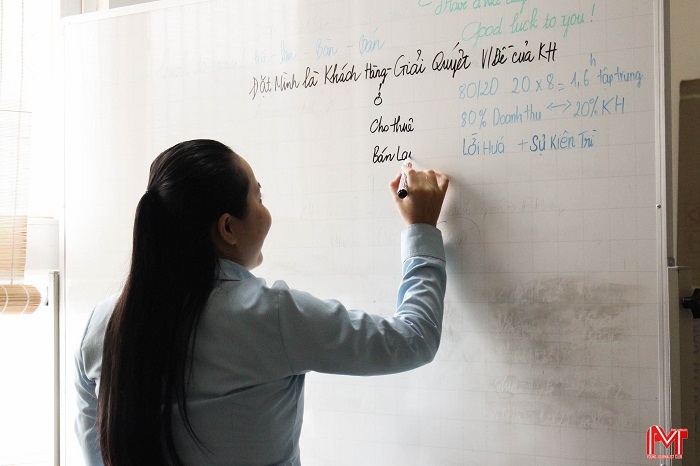 Have a nice day
Good luck to you!
Bán - Bán
Đặt Mình là Khách Hàng - Giải Quyết VĐề của KH
Cho thuê
Bán Lạ
80/20 20 x 8 = 1,6 h tập trung
80% Doanh thu ↔ 20% KH
Lời Hứa + Sự Kiên Trì
MT